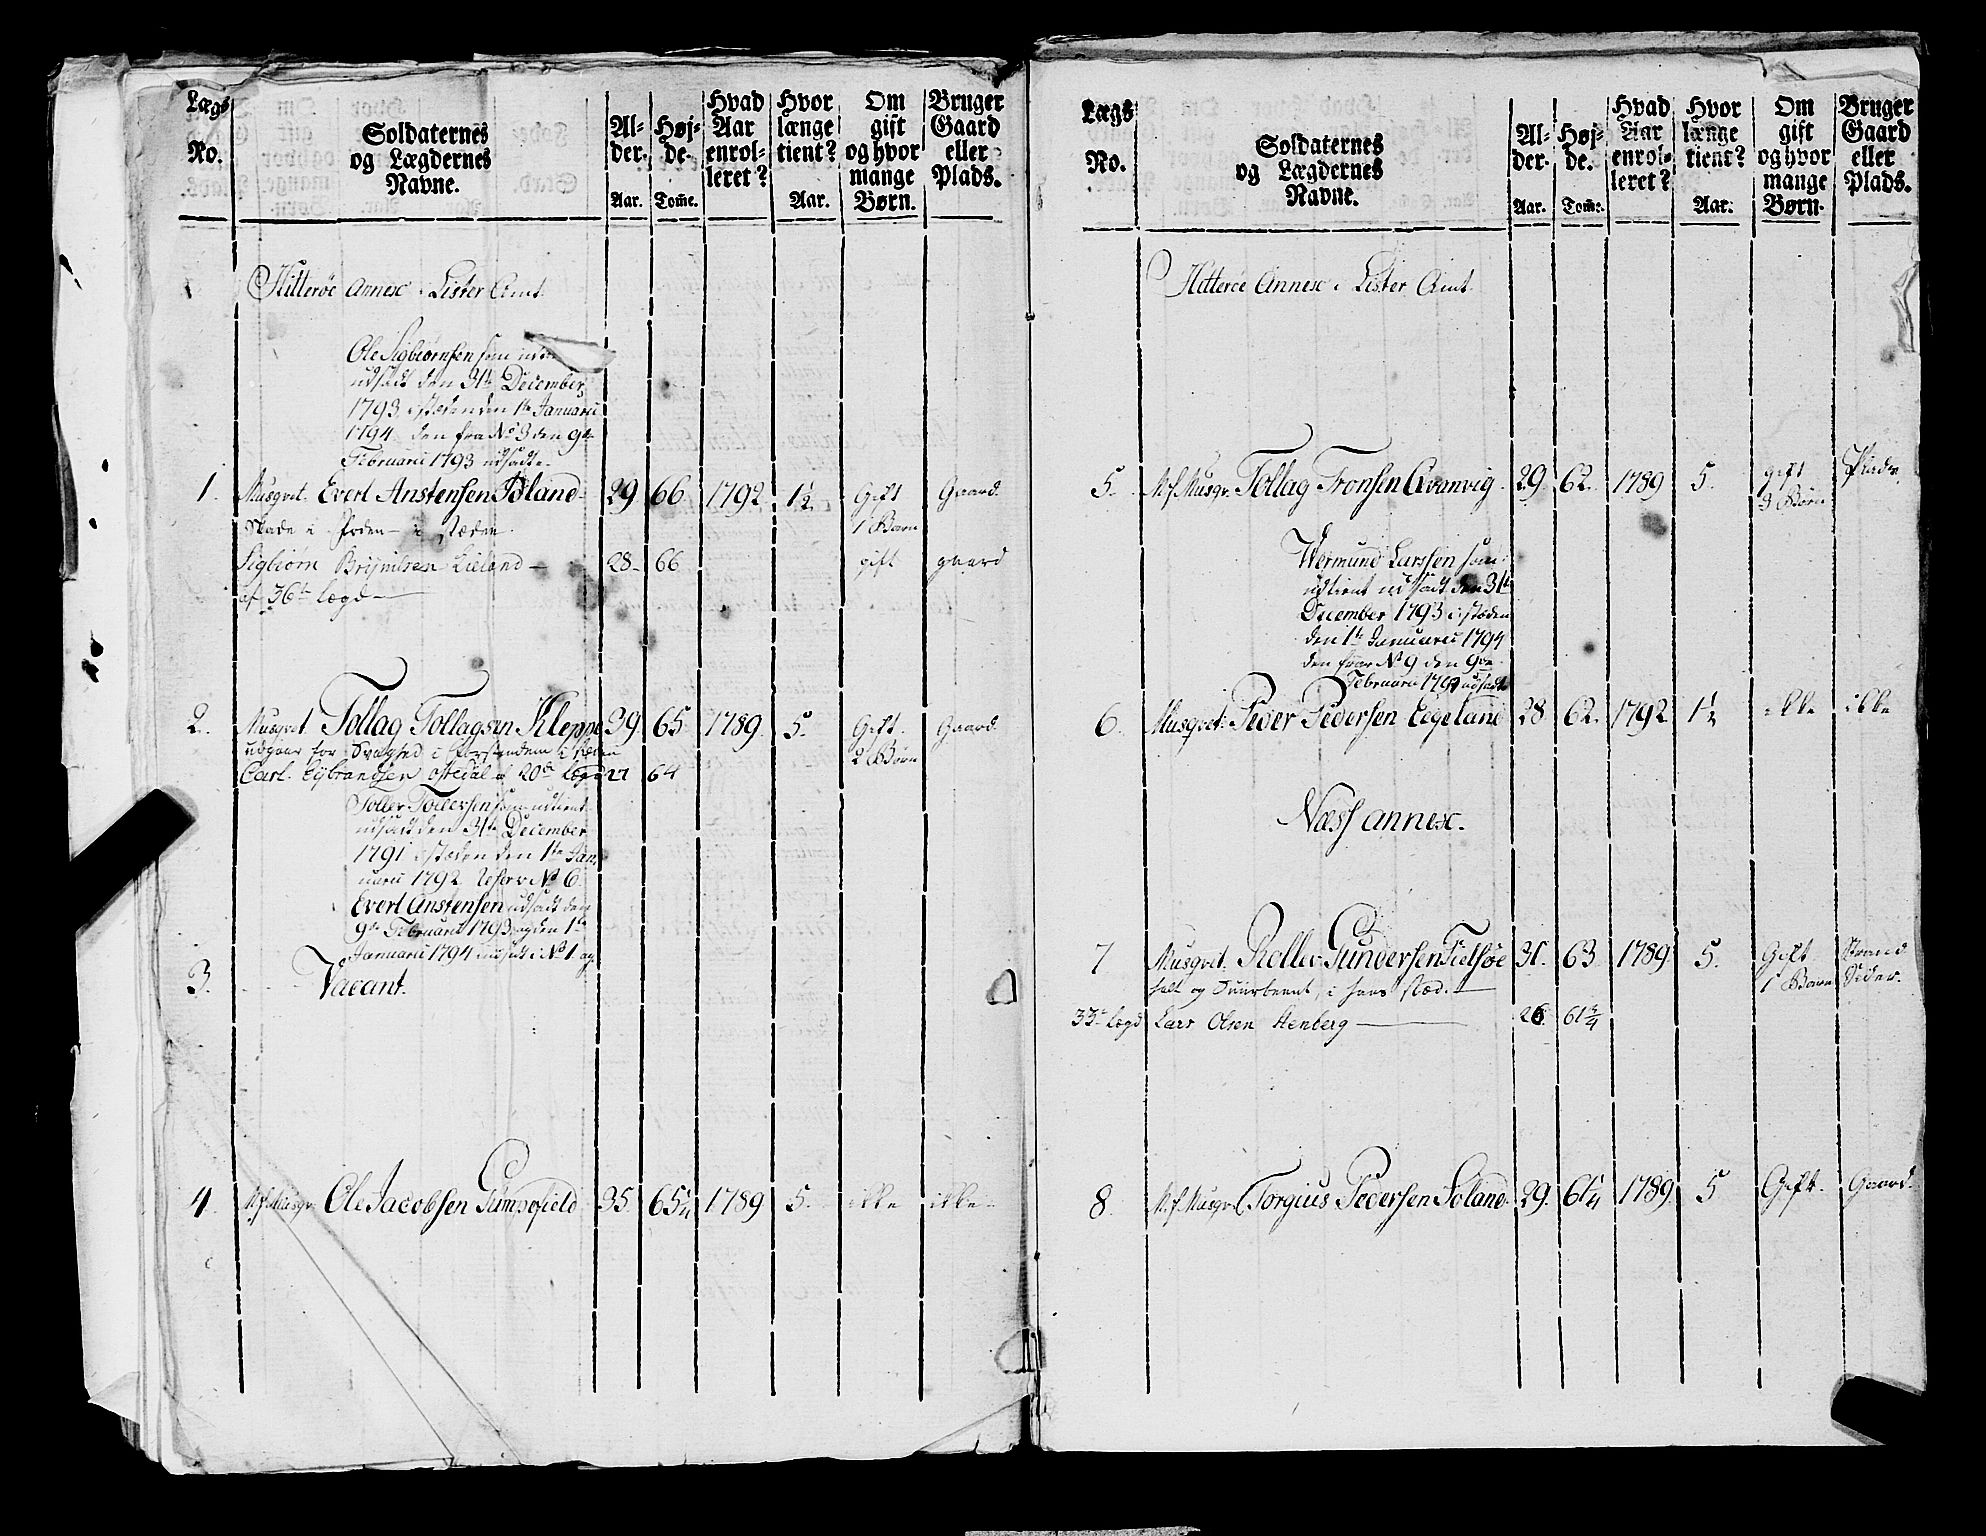 Lægs No. | Soldaternes og Lægdernes Navne. | Alder. Aar. | Højde. Tom̄e. | Hvad Aar enrolleret? | Hvor længe tient? Aar. | Om gift og hvor mange Børn. | Bruger Gaard eller Plads.
Hitterøe Annex i Lister Amt
Ole Sigbiørnsen som
udsadt den 31te December
1793 i stæden den 1te Januarii
1794 den fra No 3 den 9de
Februarii 1793 udsadte
1. Musqvet. Evert Anstensen Øland 29 66 1792 1½ Gift 1 Barn Gaard
Skade i i stæden
Sigbiørn Brynilsen Lieland 28 66 gift gaard
af 36te lægd
2. Musqvet. Tollag Tollagsen Kleppe 39 65 1789 5. Gift. 2 Børn Gaard.
udgaar for Svaghed i Forstanden i stæden
Carl Sybrandsen af 20de lægd 27 64
Toller Tollersen som udtient
udsadt den 31te December
1791 i stæden den 1te Jan-
uarii 1792 Reserv No 6.
Evert Anstensen udsadt den
9de Februarii 1793 og den 1te
Januarii 1794 indsadt i No 1. og
3. Vacant.
4. N.f. Musqv. Ole Jacobsen Gumpefield 35 65¼ 1789 5. ikke ikke
Lægs No. | Soldaternes og Lægdernes Navne. | Alder. Aar. | Højde. Tom̄e. | Hvad Aar enrolleret? | Hvor længe tient? Aar. | Om gift og hvor mange Børn. | Bruger Gaard eller Plads.
Hitterøe Annex i Lister Amt
5. N.f. Musqv. Tollag Tronsen Qvanvig 29. 62. 1789 5. gift 3 Børn
Wermund Larssen som
udtient udsadt den 31te
December 1793 i stæden
den 1te Januarii 1794
den fra No 9 den 9de
Februarii 1793 udsadte
6. Musqvet. Peder Pedersen Eigeland 28 62. 1792 1½ ikke ikke
Næss annex.
7 Musqvet. Reller Gundersen Fielsøe 31. 63. 1789. 5. Gift 1 Barn Strand Sider.
halt og i hans stæd.
33te lægd Lars Olsen Stenberg 26 61¾
8. N.f. Musqv. Torgius Pedersen Soland 29. 61¼ 1789. 5 Gift. Gaard.